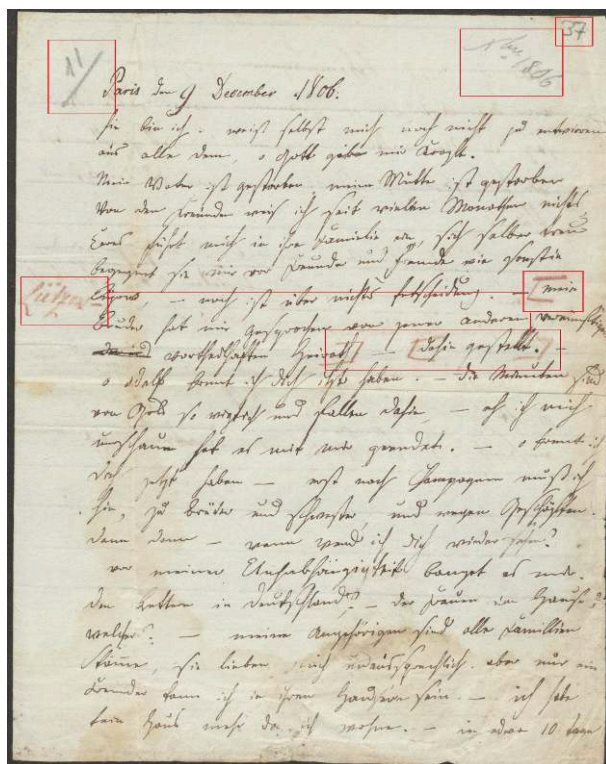 11/
37
Xbre 1806
Paris den 9 December 1806.
hie bin ich. weiß selbst mich noch nicht zu entwirren
aus alle dem, o Gott gebe mir Kraft.
Mein Vater ist gestorben, meine Mutter ist gestorben
Von den Freunden weis ich seit vielen Monathen nichts
Ceres führt mich in ihre Familie ein, sich selber treu
begegnet sie mir vor Freunde und Fremde wie
Lützow
— noch ist über nichts Entscheidung. — mein
Bruder hat mir gesprochen von jener anderen vernünftigen
vortheilhaften Heirath — dahin gestellt. —
o könnt ich dich itzt haben. — die Minuten sind
von Gold so wichtig und fallen dahin — eh ich mich
umschaue hat es mit mir geendet. — o könnt ich
dich jetzt haben — erst nach Champagne muß ich
hin, zu Brüder und Schwester, und wegen Geschäften.
dann dann — wenn werd ich dich wieder sehn?
vor meiner Unabhängigkeit banget es mir.
den Ketten in Deutschland? — der Frauen im Hause?
welches? — meine Angehörigen sind alle Familien
Stämme, sie lieben mich unaussprechlich. aber nur ein
Fremder kann ich in ihren Häusern sein. — ich habe
kein Haus mehr da ich wohne. — in etwa 10 tage